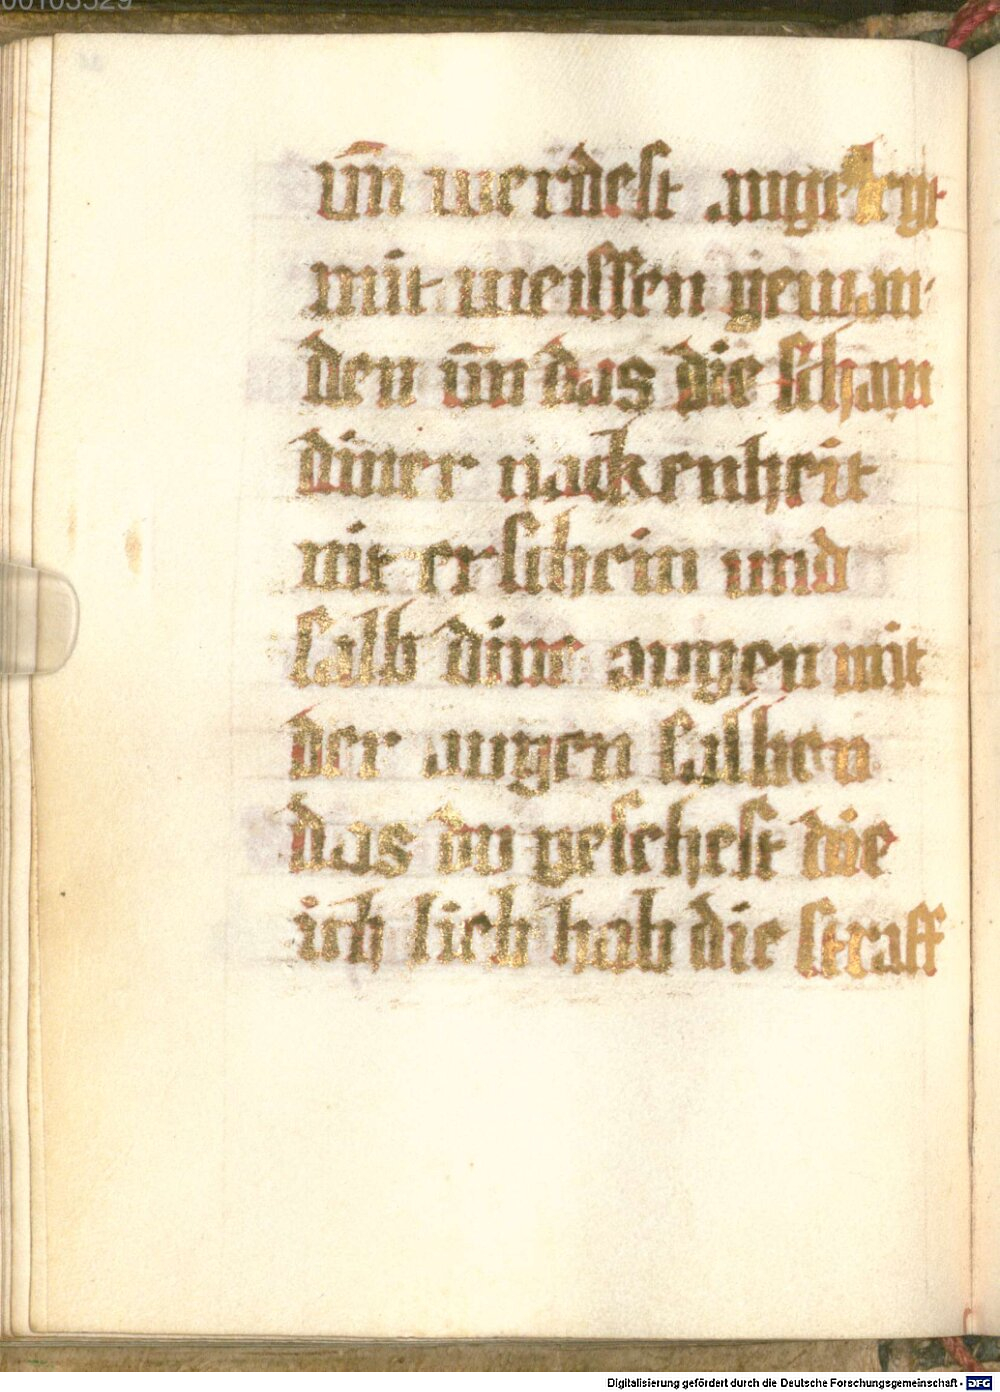 00103529
vn̄ werdest angelegt
mit weissen gewan
den vn̄ das die scham
diner nackenheit
nit erschein vnd
salb dine augen mit
der augen salben
das du gesehest die
ich lieb hab die straff
Digitalisierung gefördert durch die Deutsche Forschungsgemeinschaft - DFG